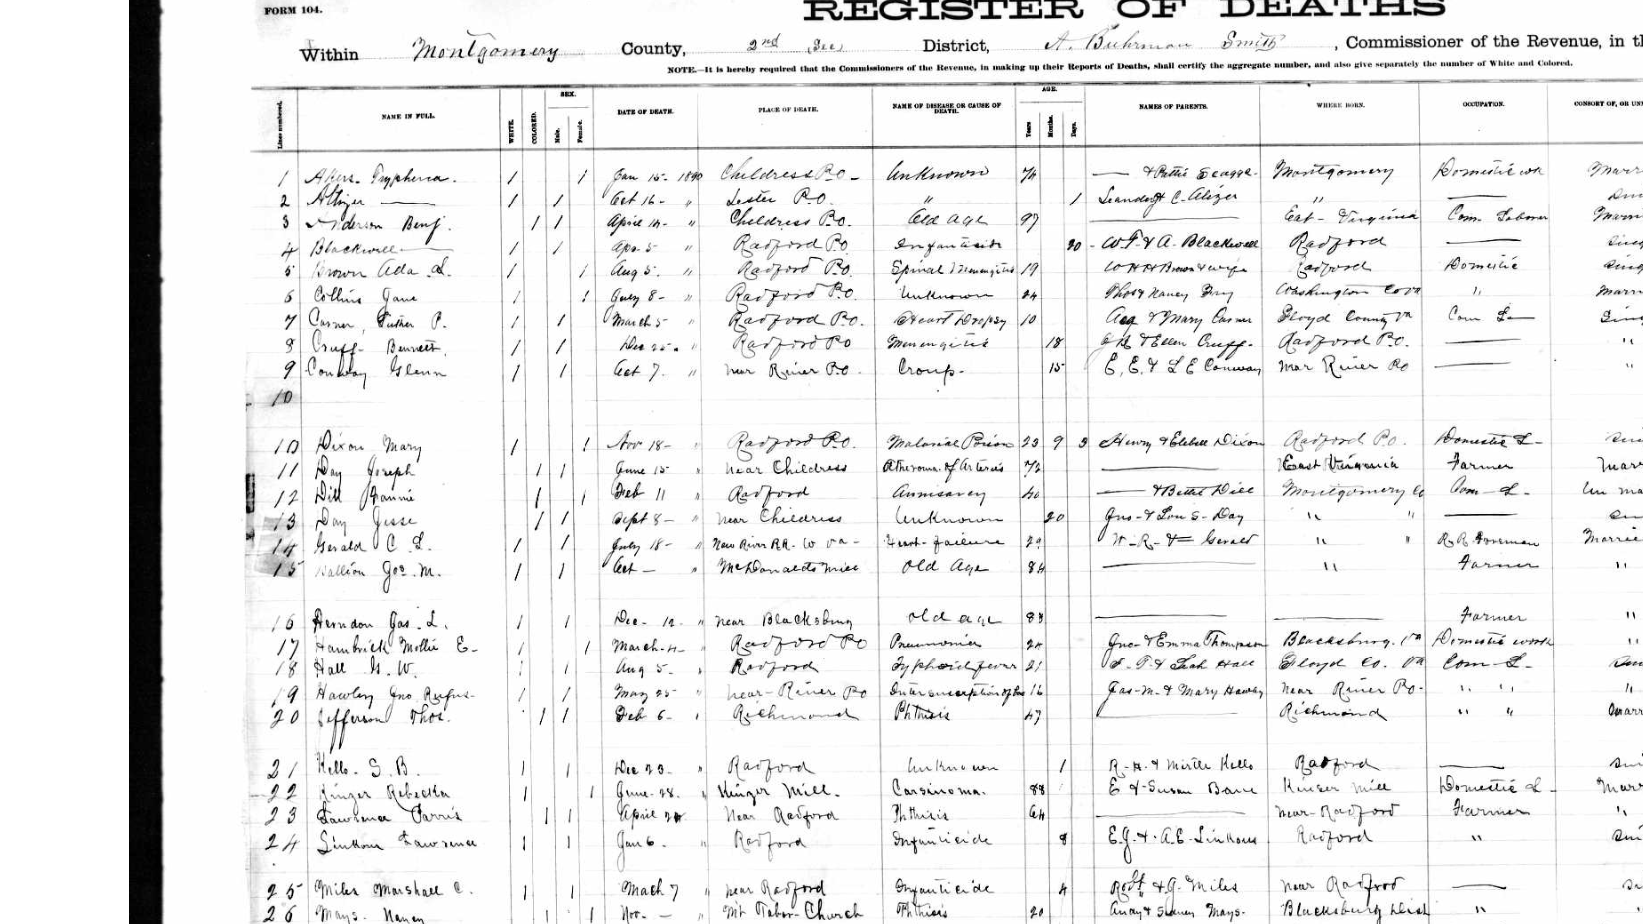 FORM 104.
REGISTER OF DEATHS
Within Montgomery County, 2nd Sec District, A. Buhrman Smith, Commissioner of the Revenue, in th
NOTE.—It is hereby required that the Commissioners of the Revenue, in making up their Reports of Deaths, shall certify the aggregate number, and also give separately the number of White and Colored.
Lines numbered. NAME IN FULL. WHITE. COLORED. SEX. Male. Female. DATE OF DEATH. PLACE OF DEATH. NAME OF DISEASE OR CAUSE OF DEATH. AGE. Years Months. Days. NAMES OF PARENTS. WHERE BORN. OCCUPATION. CONSORT OF, OR UN
1 Akers Tryphena. 1 1 Jan 15- 1890 Childress P.O- Unknown 74 — & Montgomery Domestic Marr
2 Altizer — 1 1 Oct 16- " Lester P.O. " 1 & C. Altizer "
3 Anderson Benj. 1 1 April " Childress P.O. Old Age 97 — East- Virginia Com Marr
4 Blackwell — 1 1 Apr 5 " Radford P.O Infanticide W.F. & A. Blackwell Radford — Sing
5 Brown Ada 1 1 Aug 5. " Radford P.O. Spinal Meningitis 19 W H H Brown & wife Radford Domestic Sing
6 Collins Jane 1 1 July 8- " Radford P.O. Unknown 24 Thos & Nancy Washington Co Va " Marr
7 Luther P. 1 1 March 5 " Radford P.O. Heart Dropsy 10 & Mary Floyd County Va Com L— Sing
8 Bennett. 1 1 Dec 25- " Radford PO Meningitis 18 & Ellen Radford P.O. — "
9 Conway Glenn 1 1 Oct 7. " near River P.O Croup- 15 E. E. & L E Conway near River Po — "
10
10 Dixon Mary 1 1 Nov 18- " Radford P.O. Malarial 23 9 3 Henry & Dixon Radford P.O. Domestic L-
11 Day Joseph 1 1 June 15 " near Childress Atheroma of Arteries 72 — East Virginia Farmer Marr
12 Dill Fannie 1 1 Feb 11 " Radford 40 — & Bettie Dill Montgomery Co Com- L- Un ma
13 Day Jesse 1 1 Sept 8- " near Childress Unknown 20 Jno- & Lou S- Day " " —
14 Gerald C. L. 1 1 July 18- " New River RR- W Va- Heart- failure 29 W- R- & Gerald " " R.R. Foreman Married
15 M. 1 1 Oct — " McDonalds Mill Old Age 84 — " Farmer "
16 Herndon Jas. L. 1 1 Dec- 12- " near Blacksburg old age 83 — — Farmer "
17 Hambrick Mollie E- 1 1 March-4- " Radford PO Pneumonia 24 Jno- & Emma Thompson Blacksburg. Va Domestic work "
18 Hall G. W. 1 1 Aug 5- " Radford Typhoid fever 21 & Leah Hall Floyd Co. Va Com- L-
19 Hawley Jno Rufus- 1 1 May 25- " near- River PO 16 Jas- M- & Mary Hawley near River Po- " " "
20 Jefferson Thos. 1 1 Feb 6- " Richmond Phthisis 47 — Richmond " " Marr
21 S. B. 1 1 Dec 23- " Radford Unknown 1 R- & Mirtle Radford —
22 Kinger Rebecka 1 1 June-28- " Kinger Mill. Carsinoma. 88 E & Susan Bane Kinser Mill Domestic L- Marr
23 Lawrence Parris 1 1 April " Near Radford Phthisis 64 — near-Radford Farmer "
24 Linkous Lawrence 1 1 Jan 6. " Radford Infanticide 8 E.J. & A.E- Linkous Radford "
25 Miles Marshall C. 1 1 Mach 7 " near Radford Infanticide 4 Robt. & G. Miles near Radford —
26 Mays. Nancy 1 1 Nov. — " Mt Tabor-Church Phthisis 20 & Mays- Blacksburg Dist "